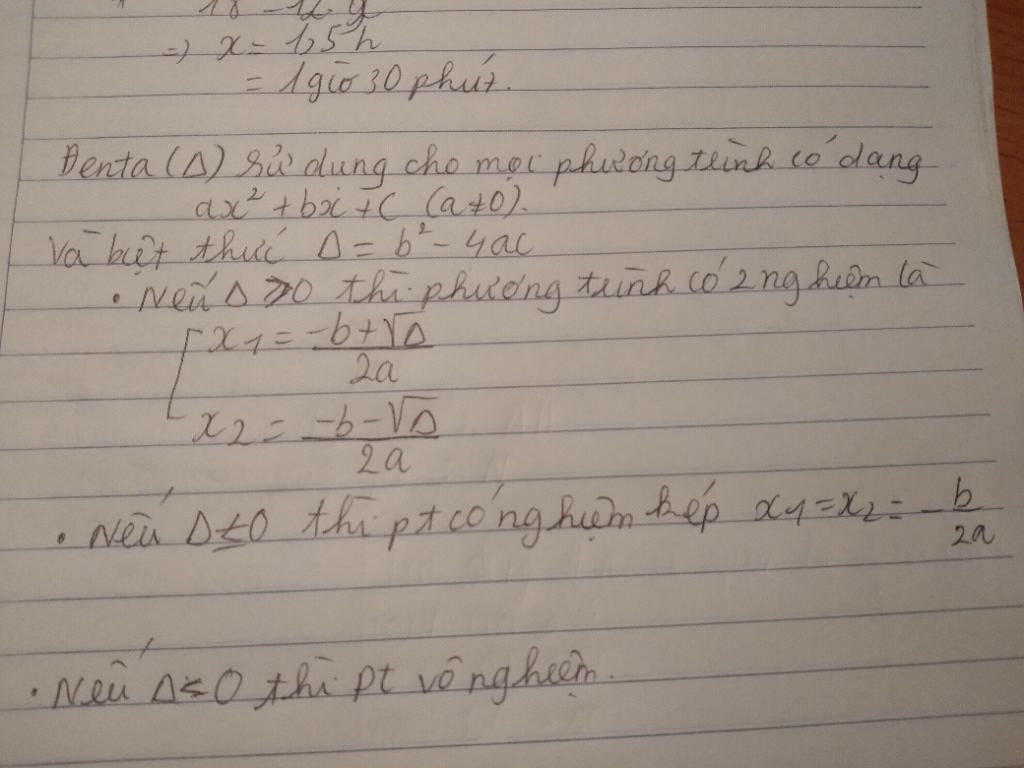 18 - 12.y
=> x = 1,5 h
= 1 giờ 30 phút.
Đenta (Δ) sử dung cho mọi phương trình có dạng
ax² + bx + c (a ≠ 0).
Và biệt thức Δ = b² - 4ac
• Nếu Δ ⩾ 0 thì phương trình có 2 nghiệm là
[ x₁ = (-b + √Δ) / 2a
x₂ = (-b - √Δ) / 2a
• Nếu Δ ≤ 0 thì pt có nghiệm kép x₁ = x₂ = - b / 2a
• Nếu Δ ≤ 0 thì pt vô nghiệm.